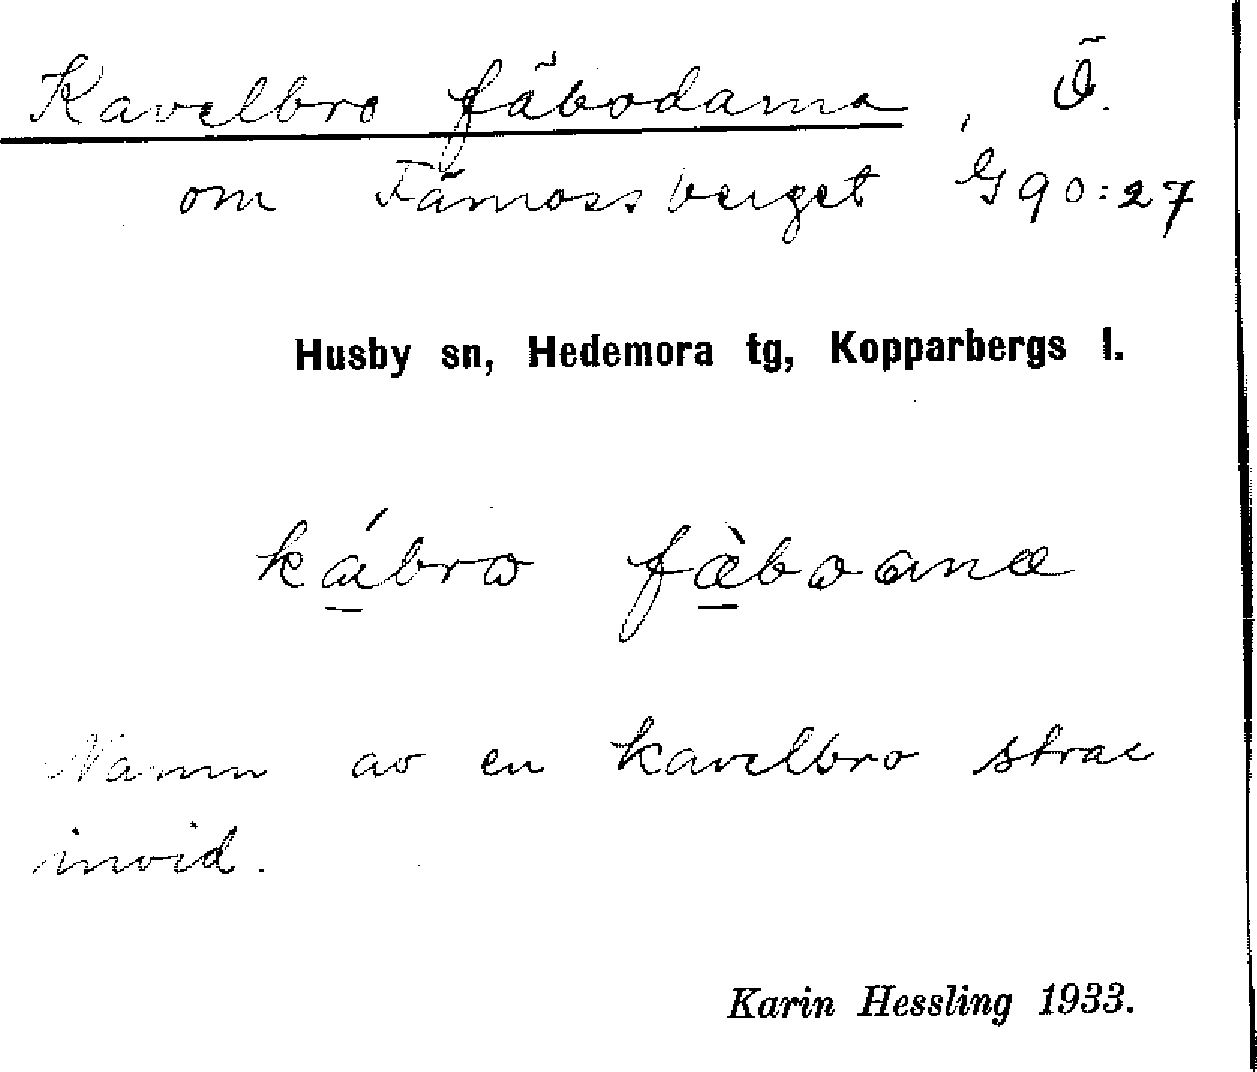 Kavelbro fäbodarna, Ö.
om Fämossberget G 90:27
Husby sn, Hedemora tg, Kopparbergs l.
kábro fæ̀boanæ
Namn av en kavelbro strax
invid.
Karin Hessling 1933.